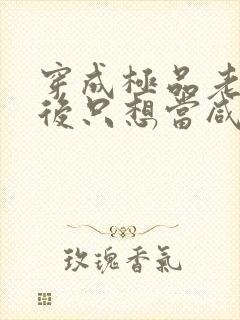 穿成極品老
後只想當咸
玫瑰香氣